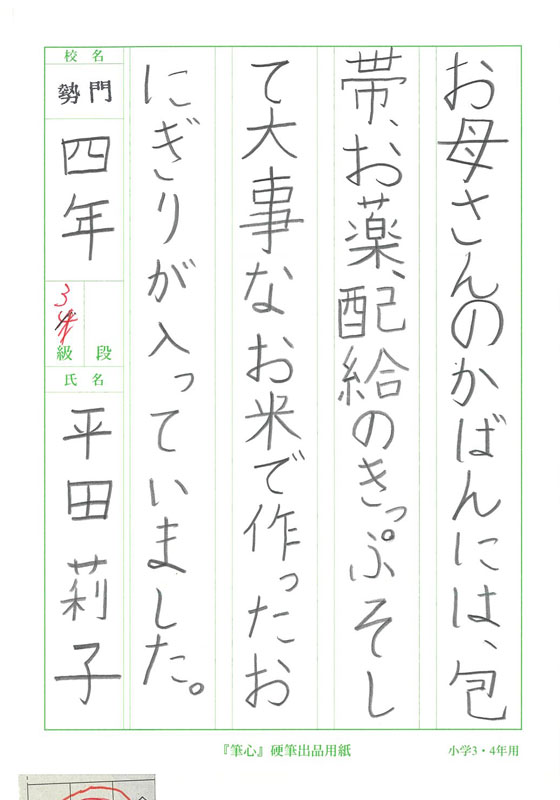 お母さんのかばんには、包
帯、お薬、配給のきっぷそし
て大事なお米で作ったお
にぎりが入っていました。
校名
勢門
四年
3
級 段
氏名
平田莉子
『筆心』硬筆出品用紙
小学3・4年用